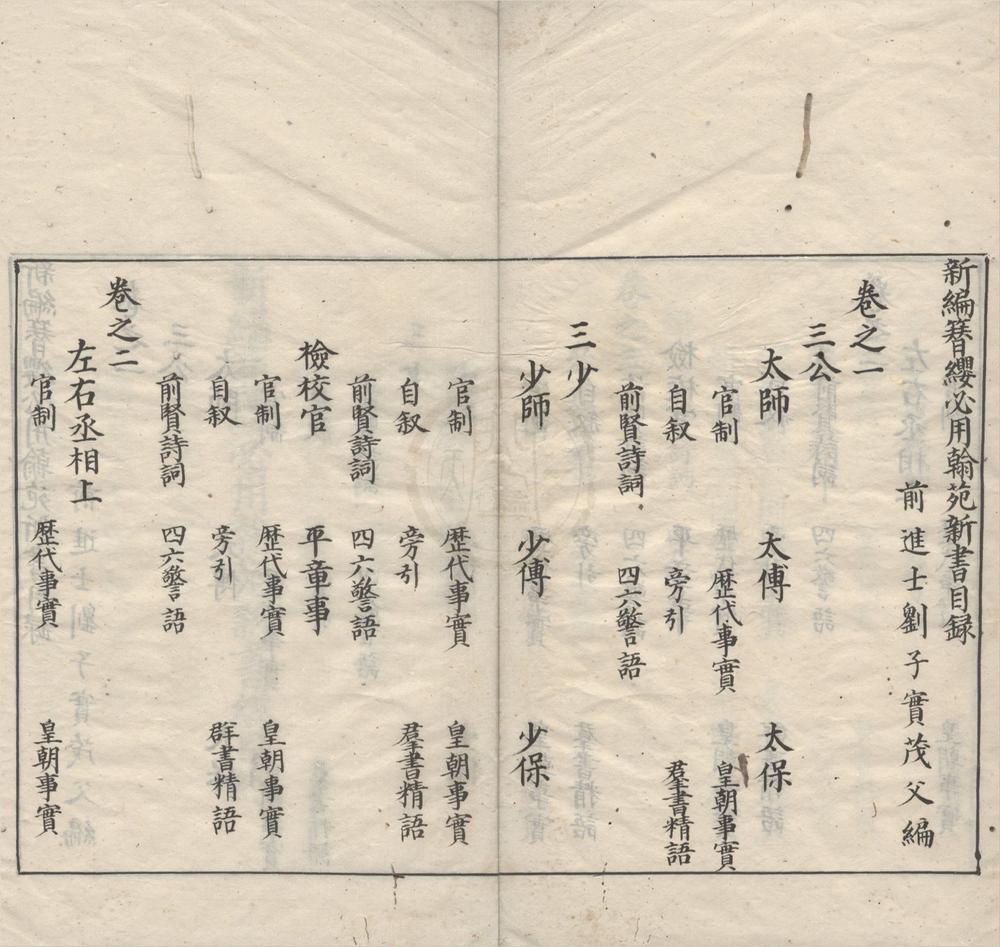 新編簪纓必用翰苑新書目録
前進士劉子實茂父編
卷之一
三公
太師 太傅 太保
官制 歷代事實 皇朝事實
自叙 旁引 羣書精語
前賢詩詞 四六警語
三少
少師 少傅 少保
官制 歷代事實 皇朝事實
自叙 旁引 羣書精語
前賢詩詞 四六警語
檢校官 平章事
官制 歷代事實 皇朝事實
自叙 旁引 群書精語
前賢詩詞 四六警語
卷之二
左右丞相上
官制 歷代事實 皇朝事實